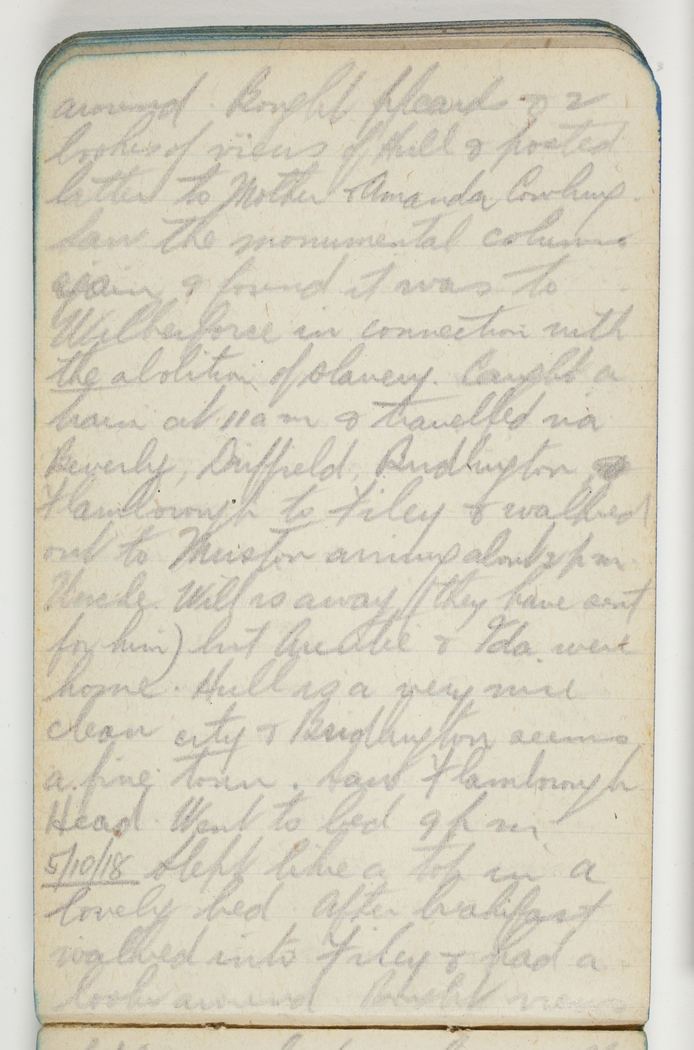 around. Bought p/cards & 2
books of views of Hull & posted
latter to Mother & Amanda Cowling.
Saw the monumental column
again & found it was to
Wilberforce in connection with
the abolition of slavery. Caught a
train at 11 am & travelled via
Beverly, Driffield, Bridlington,
Flamborough to Filey & walked
out to Muston arriving about 2 pm.
Uncle Will is away (they have sent
for him) but Auntie & Ida were
home. Hull is a very nice
clean city & Bridlington seems
a fine town. Saw Flamborough
Head. Went to bed 9 pm
5/10/18 Slept like a top in a
lovely bed After breakfast
walked into Filey & had a
look around Bought views